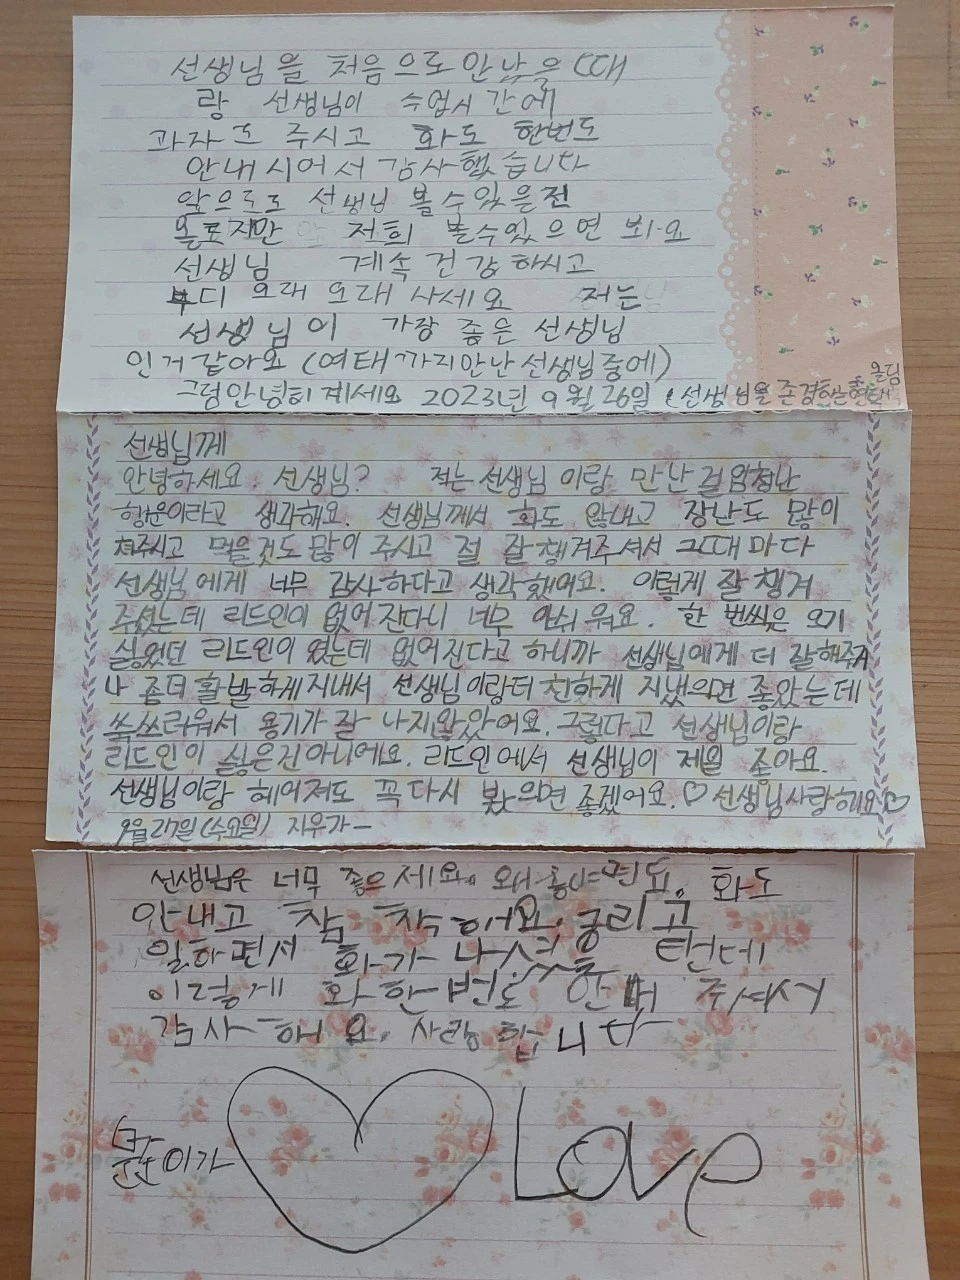 선생님을 처음으로 만났을 때
랑 선생님이 수업시간에
과자도 주시고 화도 한번도
안내시어서 감사했습니다
앞으로도 선생님 볼수있은진
모르지만 저희 볼수있으면 봐요
선생님 계속 건강하시고
부디 오래오래 사세요 저는
선생님이 가장 좋은 선생님
인거같아요 (여태까지만난선생님중에)
그럼안녕히계세요 2023년 9월 26일 (선생님을 존경하는 올림
선생님께
안녕하세요. 선생님? 저는 선생님이랑 만난걸 엄청난
행운이라고 생각해요. 선생님께서 화도 않내고 장난도 많이
쳐주시고 먹을것도 많이 주시고 절 잘 챙겨주셔서 그때마다
선생님에게 너무 감사하다고 생각했어요. 이렇게 잘 챙겨
주셨는데 리드인이 없어진다니 너무 아쉬워요. 한 번씩은 오기
싫었던 리드인이 였는데 없어진다고 하니까 선생님에게 더 잘해주거
나 좀더 활발하게지내서 선생님이랑더 친하게 지냈으면 좋았는데
쑥쓰러워서 용기가 잘 나지않았어요. 그렇다고 선생님이랑
리드인이 싫은건아니에요. 리드인에서 선생님이 제일 좋아요.
선생님이랑 헤어져도 꼭 다시 봤으면 좋겠어요.♡ 선생님사랑해요♡
9월27일(수요일) 지우가ㅡ
선생님은 너무 좋으세요. 왜 화도
안내고 참 착해요. 궁리고
일하면서 화가 나셨을 턴데
이렇게 화 한번도 안내 주셔서
감사해요. 사랑합니다
이가 ♡ Love